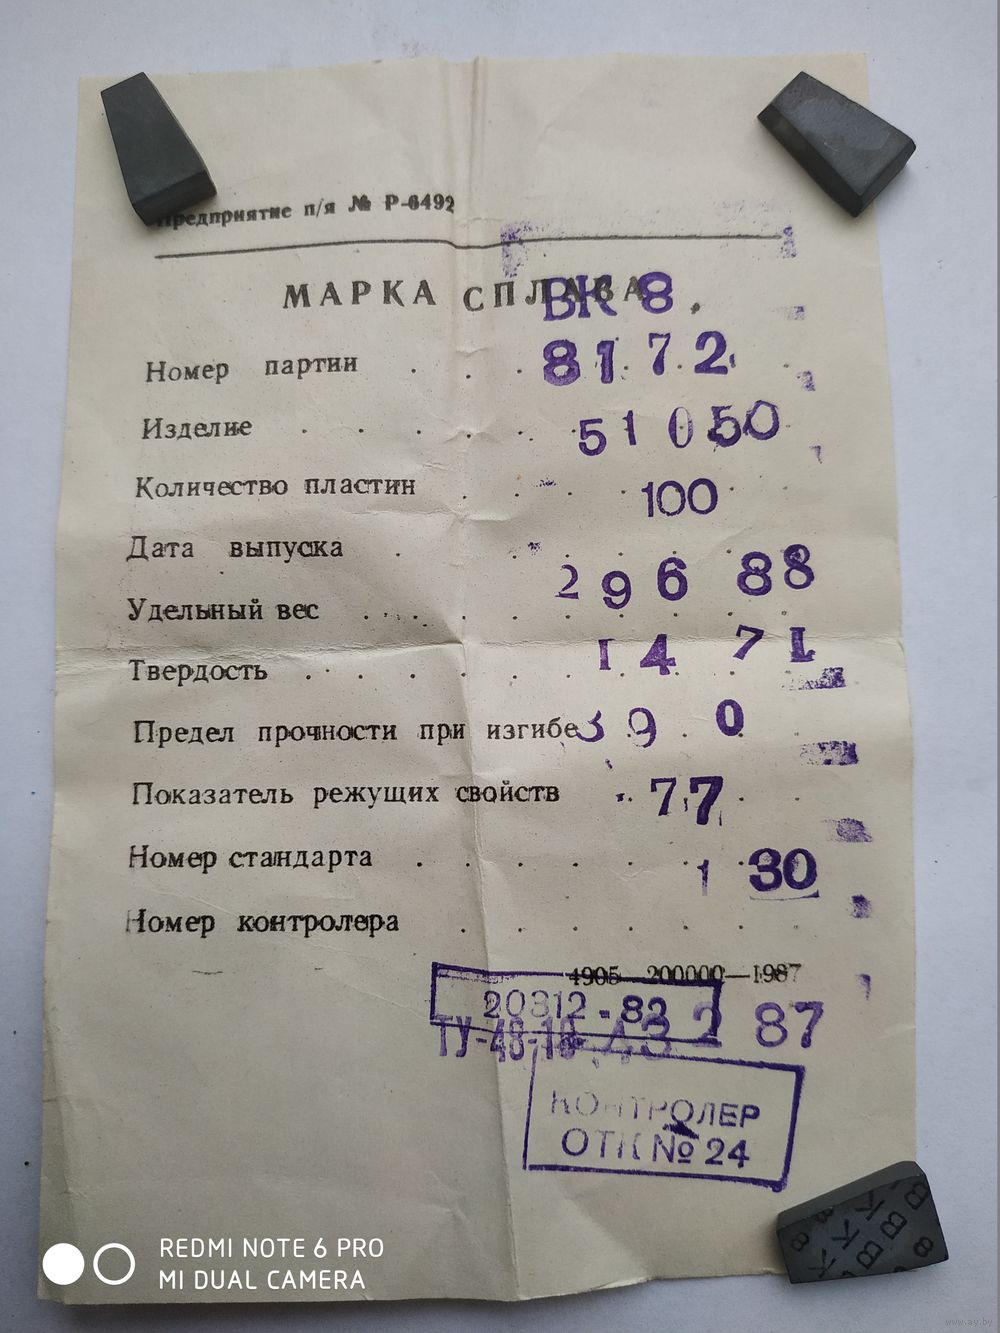 Предприятие п/я № Р-6492
МАРКА СПЛАВА ВК 8
Номер партии 8172
Изделие 51050
Количество пластин 100
Дата выпуска 29 6 88
Удельный вес 14 71
Твердость 89.0
Предел прочности при изгибе
Показатель режущих свойств 77
Номер стандарта 1 30
Номер контролера
4905—200000—1987
20312-82
ТУ-48-19- 87
КОНТРОЛЕР
ОТК № 24
ВК8
REDMI NOTE 6 PRO
MI DUAL CAMERA
www.ay.by